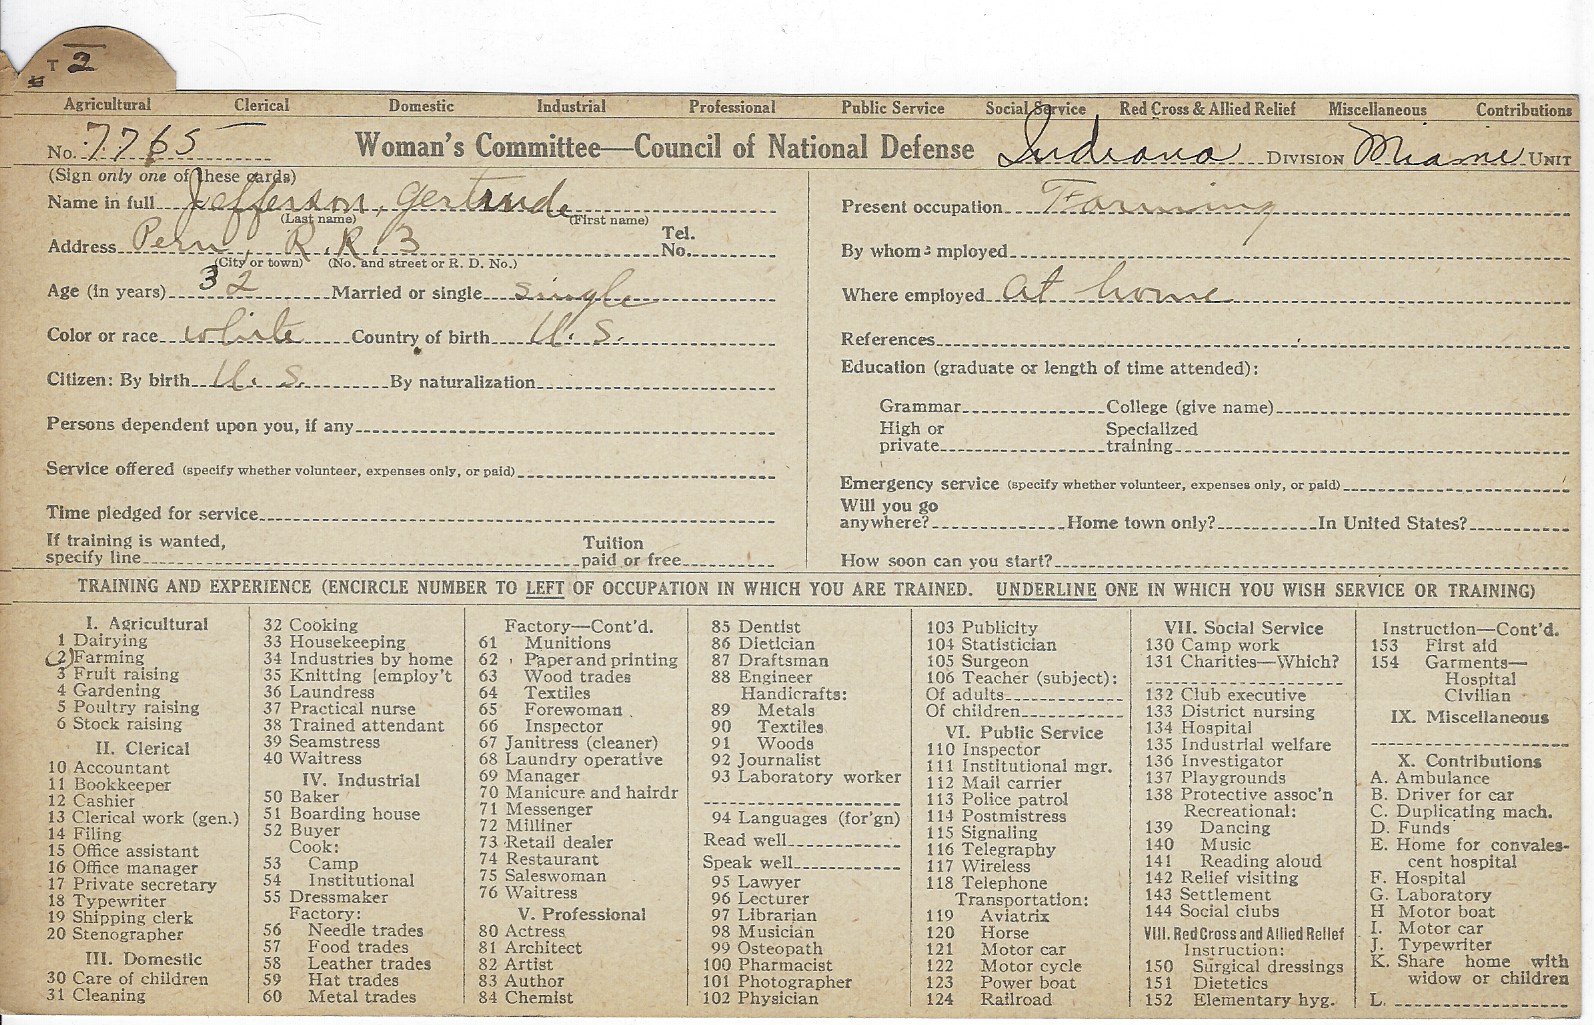 T 2
Agricultural Clerical Domestic Industrial Professional Public Service Social Service Red Cross & Allied Relief Miscellaneous Contributions
No. 7765 Woman's Committee—Council of National Defense Indiana DIVISION Miami UNIT
(Sign only one of these cards)
Name in full Jefferson, Gertrude
(Last name) (First name)
Address Peru R.R. 3 Tel. No.
(City or town) (No. and street or R. D. No.)
Age (in years) 32 Married or single single
Color or race white Country of birth U.S.
Citizen: By birth U.S. By naturalization
Persons dependent upon you, if any
Service offered (specify whether volunteer, expenses only, or paid)
Time pledged for service
If training is wanted, specify line Tuition paid or free
Present occupation Farming
By whom employed
Where employed at home
References
Education (graduate or length of time attended):
Grammar College (give name)
High or private Specialized training
Emergency service (specify whether volunteer, expenses only, or paid)
Will you go anywhere? Home town only? In United States?
How soon can you start?
TRAINING AND EXPERIENCE (ENCIRCLE NUMBER TO LEFT OF OCCUPATION IN WHICH YOU ARE TRAINED. UNDERLINE ONE IN WHICH YOU WISH SERVICE OR TRAINING)
I. Agricultural
1 Dairying
2 Farming
3 Fruit raising
4 Gardening
5 Poultry raising
6 Stock raising
II. Clerical
10 Accountant
11 Bookkeeper
12 Cashier
13 Clerical work (gen.)
14 Filing
15 Office assistant
16 Office manager
17 Private secretary
18 Typewriter
19 Shipping clerk
20 Stenographer
III. Domestic
30 Care of children
31 Cleaning
32 Cooking
33 Housekeeping
34 Industries by home
35 Knitting [employ't
36 Laundress
37 Practical nurse
38 Trained attendant
39 Seamstress
40 Waitress
IV. Industrial
50 Baker
51 Boarding house
52 Buyer
Cook:
53 Camp
54 Institutional
55 Dressmaker
Factory:
56 Needle trades
57 Food trades
58 Leather trades
59 Hat trades
60 Metal trades
Factory—Cont'd.
61 Munitions
62 Paper and printing
63 Wood trades
64 Textiles
65 Forewoman
66 Inspector
67 Janitress (cleaner)
68 Laundry operative
69 Manager
70 Manicure and hairdr
71 Messenger
72 Milliner
73 Retail dealer
74 Restaurant
75 Saleswoman
76 Waitress
V. Professional
80 Actress
81 Architect
82 Artist
83 Author
84 Chemist
85 Dentist
86 Dietician
87 Draftsman
88 Engineer
Handicrafts:
89 Metals
90 Textiles
91 Woods
92 Journalist
93 Laboratory worker
94 Languages (for'gn)
Read well
Speak well
95 Lawyer
96 Lecturer
97 Librarian
98 Musician
99 Osteopath
100 Pharmacist
101 Photographer
102 Physician
103 Publicity
104 Statistician
105 Surgeon
106 Teacher (subject):
Of adults
Of children
VI. Public Service
110 Inspector
111 Institutional mgr.
112 Mail carrier
113 Police patrol
114 Postmistress
115 Signaling
116 Telegraphy
117 Wireless
118 Telephone
Transportation:
119 Aviatrix
120 Horse
121 Motor car
122 Motor cycle
123 Power boat
124 Railroad
VII. Social Service
130 Camp work
131 Charities—Which?
132 Club executive
133 District nursing
134 Hospital
135 Industrial welfare
136 Investigator
137 Playgrounds
138 Protective assoc'n
Recreational:
139 Dancing
140 Music
141 Reading aloud
142 Relief visiting
143 Settlement
144 Social clubs
VIII. Red Cross and Allied Relief
Instruction:
150 Surgical dressings
151 Dietetics
152 Elementary hyg.
Instruction—Cont'd.
153 First aid
154 Garments—
Hospital
Civilian
IX. Miscellaneous
X. Contributions
A. Ambulance
B. Driver for car
C. Duplicating mach.
D. Funds
E. Home for convales-
cent hospital
F. Hospital
G. Laboratory
H Motor boat
I. Motor car
J. Typewriter
K. Share home with
widow or children
L.